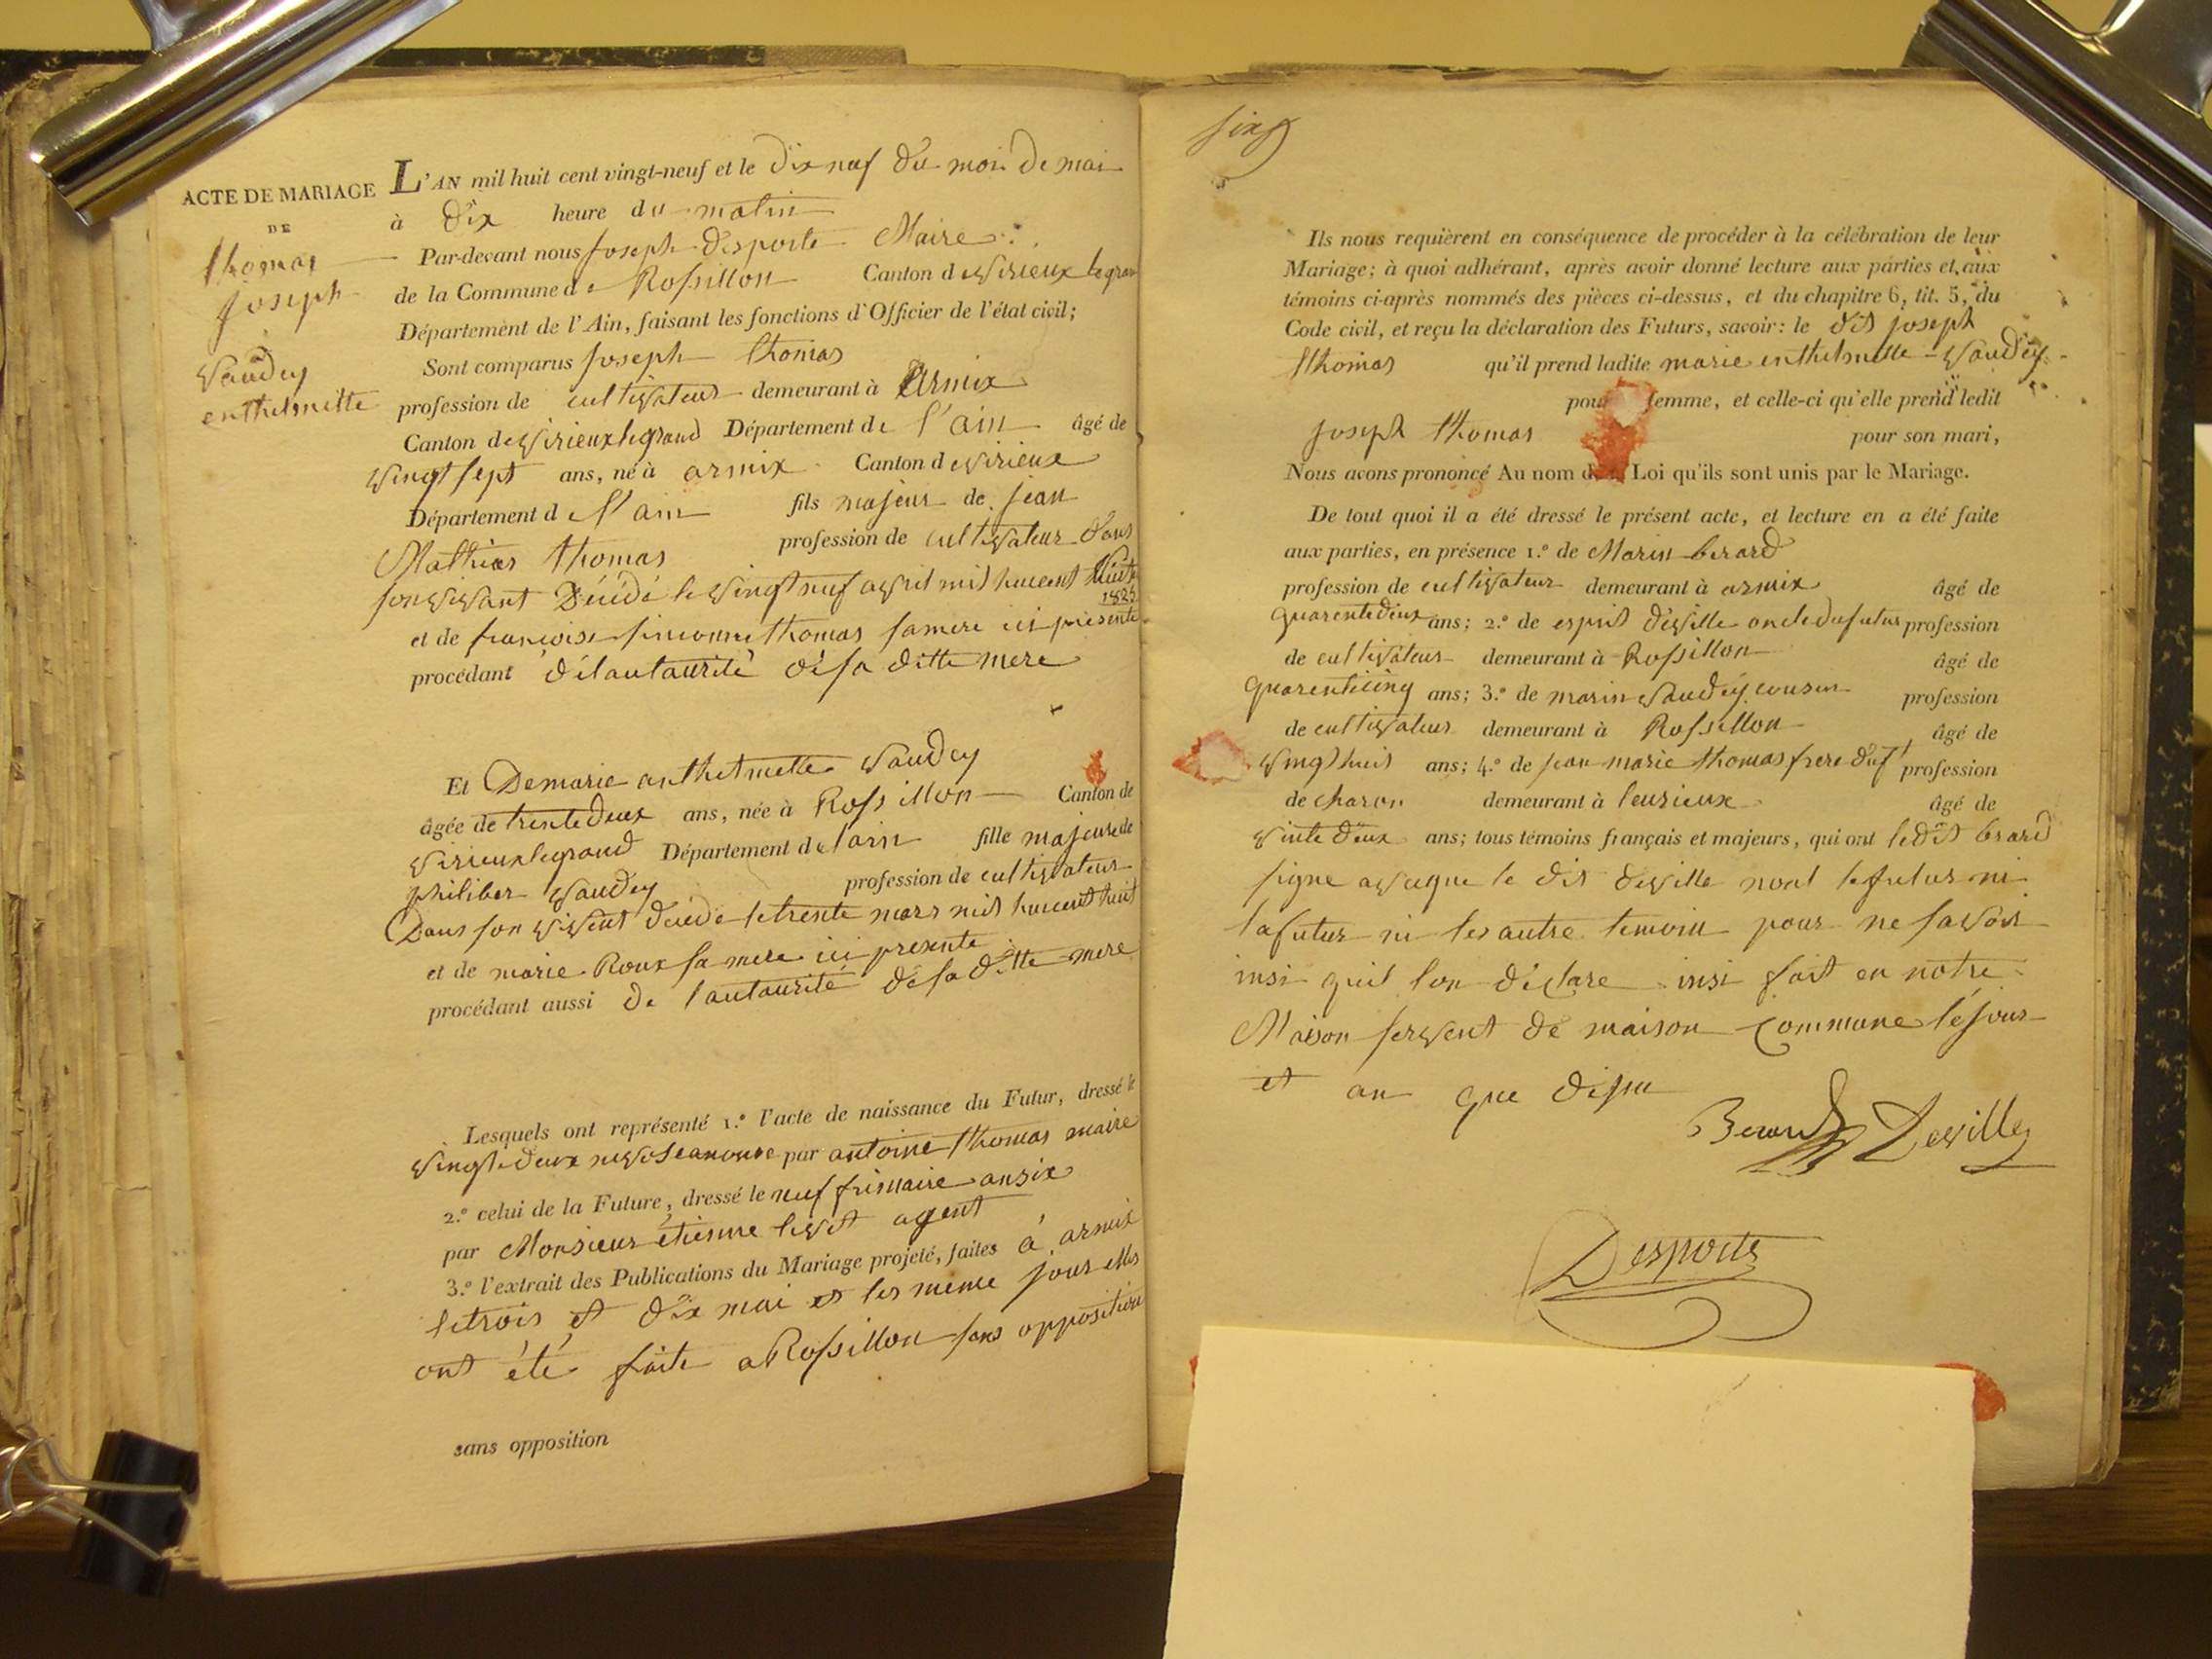 ACTE DE MARIAGE
DE
thomas
joseph
Vaudey
enthelmette
L'AN mil huit cent vingt-neuf et le dix neuf du mois de mai
à dix heure du matin
Par-devant nous joseph desporte Maire
de la Commune de Rossillon Canton de Virieux le grand
Département de l'Ain, faisant les fonctions d'Officier de l'état civil;
Sont comparus joseph thomas
profession de cultivateur demeurant à Armix
Canton de Virieux legrand Département de l'ain âgé de
Vingt sept ans, né à armix Canton de Virieux
Département de l'ain fils majeur de jean
Mathias thomas profession de cultivateur dans
son vivant décédé le Vingt neuf avril mil huicent
1825
et de françoise thomas sa mere ici présente
procédant de lautaurité de sa ditte mere
Et De marie anthelmette Vaudey
âgée de trente deux ans, née à Rossillon Canton de
Virieux legrand Département de lain fille majeure de
philiber Vaudey profession de cultivateur
Dans son vivent décédé le trente mars mil huicent huit
et de marie Roux sa mere ici presente
procédant aussi de l'autaurité de sa ditte mere
Lesquels ont représenté 1.° l'acte de naissance du Futur, dressé le
Vingt deux par antoine thomas maire
2.° celui de la Future, dressé le neuf frimaire an six
par Monsieur étienne livet agent
3.° l'extrait des Publications du Mariage projeté, faites à armix
le trois et dix mai et les meme jour elles
ont été faite a Rossillon sans opposition
sans opposition
Ils nous requièrent en conséquence de procéder à la célébration de leur
Mariage; à quoi adhérant, après avoir donné lecture aux parties et aux
témoins ci-après nommés des pièces ci-dessus, et du chapitre 6, tit. 5, du
Code civil, et reçu la déclaration des Futurs, savoir: le dit joseph
thomas qu'il prend ladite marie enthelmette Vaudey
pour femme, et celle-ci qu'elle prend ledit
joseph thomas pour son mari,
Nous avons prononcé Au nom de la Loi qu'ils sont unis par le Mariage.
De tout quoi il a été dressé le présent acte, et lecture en a été faite
aux parties, en présence 1.° de Marin berard
profession de cultivateur demeurant à armix âgé de
quarente deux ans; 2.° de esprit deville oncle du futur profession
de cultivateur demeurant à Rossillon âgé de
quarenticinq ans; 3.° de marin Vaudey cousin profession
de cultivateur demeurant à Rossillon âgé de
Vingt huit ans; 4.° de jean marie thomas frere du f profession
de charon demeurant à leurieux âgé de
deux ans; tous témoins français et majeurs, qui ont ledit brard
signe aveque le dit deville nont le futur ni
la futur ni les autre temoin pour ne savoir
insi quil lon déclare insi fait en notre
Maison servent de maison commune le jour
et an que desu
Berard Deville
Desporte